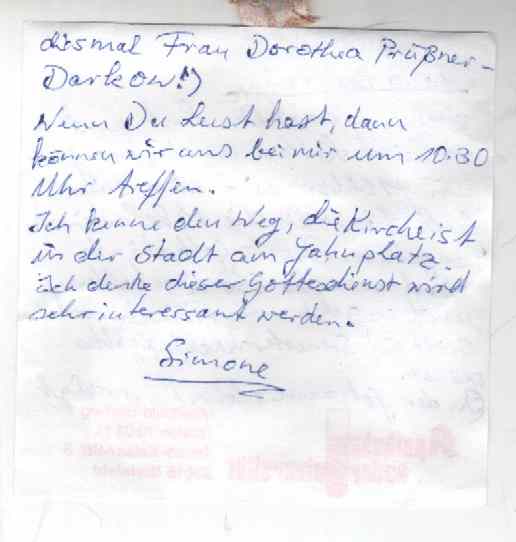 diesmal Frau Dorothea Prüßner-
Darkow!)
Wenn Du Lust hast, dann
können wir uns bei mir um 10.30
Uhr treffen.
Ich kenne den Weg, die Kirche ist
in der Stadt am Jahnplatz.
Ich denke dieser Gottesdienst wird
sehr interessant werden.
Simone